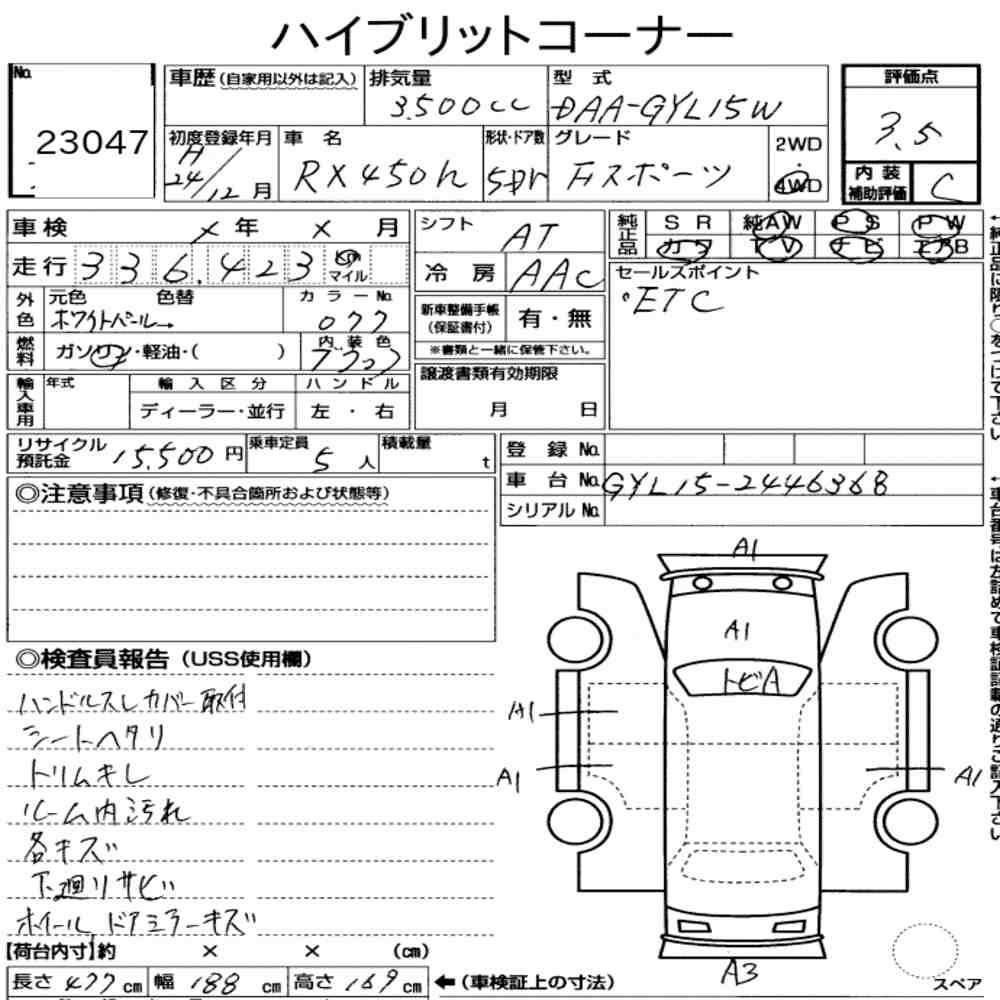 ハイブリットコーナー
No. 23047
車歴(自家用以外は記入) 排気量 3.500cc 型 式 DAA-GYL15W
評価点 3.5
初度登録年月 H 24/12 月 車 名 RX450h 形状・ドア数 5Dr グレード Fスポーツ 2WD・4WD
内装補助評価 C
車検 × 年 × 月
シフト AT
純正品 SR 純AW PS PW
カワ TV ナビ エアB
走行 336,423 Km マイル
冷 房 AAC
セールスポイント
・ETC
外色 元色 ホワイトパール→ 色替 カラーNo. 077
新車整備手帳(保証書付) 有・無
※書類と一緒に保管下さい。
燃料 ガソリン・軽油・( ) 内装色
輸入車用 年式 輸入区分 ハンドル
ディーラー・並行 左・右
譲渡書類有効期限
月 日
リサイクル預託金 15,500 円 乗車定員 5 人 積載量 t
登 録 No.
車 台 No. GYL15-2446368
シリアル No.
◎注意事項(修復・不具合箇所および状態等)
◎検査員報告(USS使用欄)
ハンドルスレカバー取付
シートヘタリ
トリムキレ
ルーム内汚れ
各キズ
下廻りサビ
ホイール ドアミラーキズ
A1
A1
トビA
A1
A1
A1
A3
【荷台内寸】約 × × (cm)
長さ 477 cm 幅 188 cm 高さ 169 cm ←(車検証上の寸法)
スペア
←純正品に限り○をつけて下さい
←車台番号は左詰めで車検証記載の通りご記入下さい